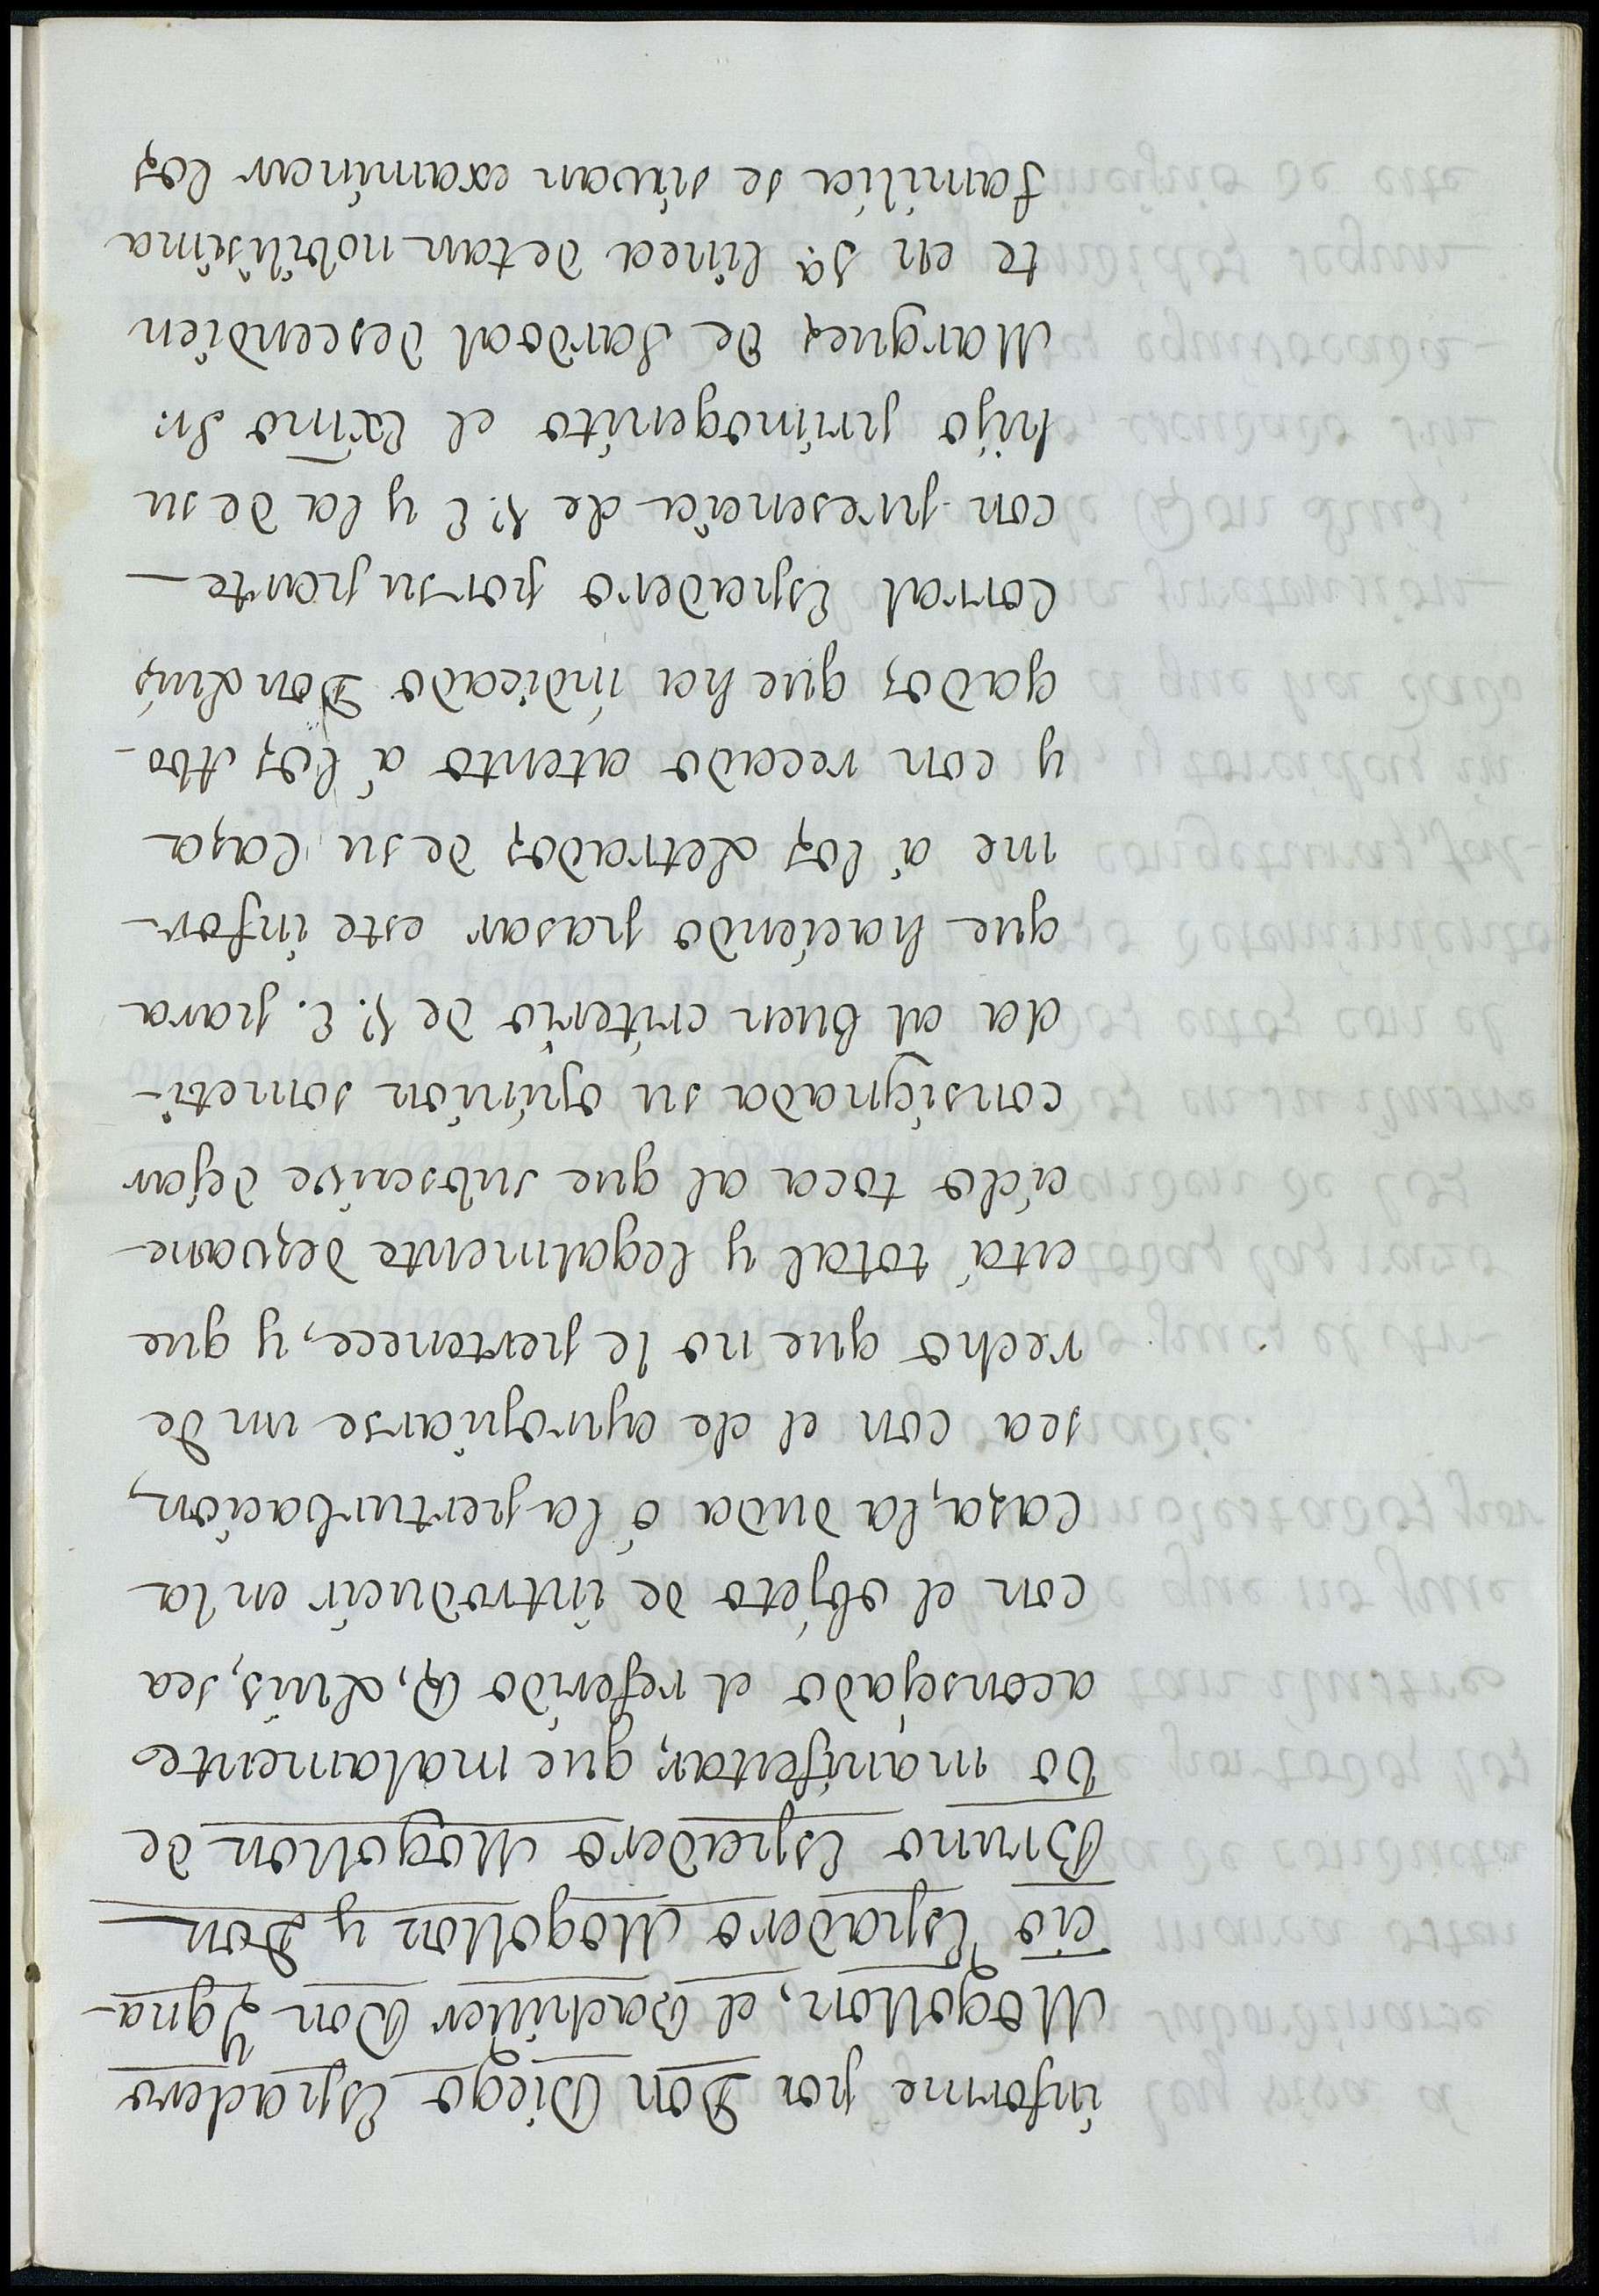 informe por Don Diego Espadero
Mogollon, el Bachiller Don Ygna-
cio Espadero Mogollon y Don
Bruno Espadero Mogollon de
vo manifestar, que malamente
aconsejado el referido D, Luis, sea
con el objeto de introducir en la
Casa, la duda ó la perturbacion,
sea con el de apropiarse un de
recho que no le pertenece, y que
está total y legalmente desvane-
cido toca al que subscrive dejar
consignada su opinion someti-
da al buen criterio de V. E. para
que haciendo pasar este infor-
me á los Letrados de su Casa
y con recado atento á los Abo-
gados que ha indicado Don Luis
Corral Espadero por su parte—
con presencia de V. E y la de su
hijo primogenito el Exmo Sr.
Marques de Sardoal descendien
te en 5ª linea de tan nobilisima
familia se sirvan examinar los